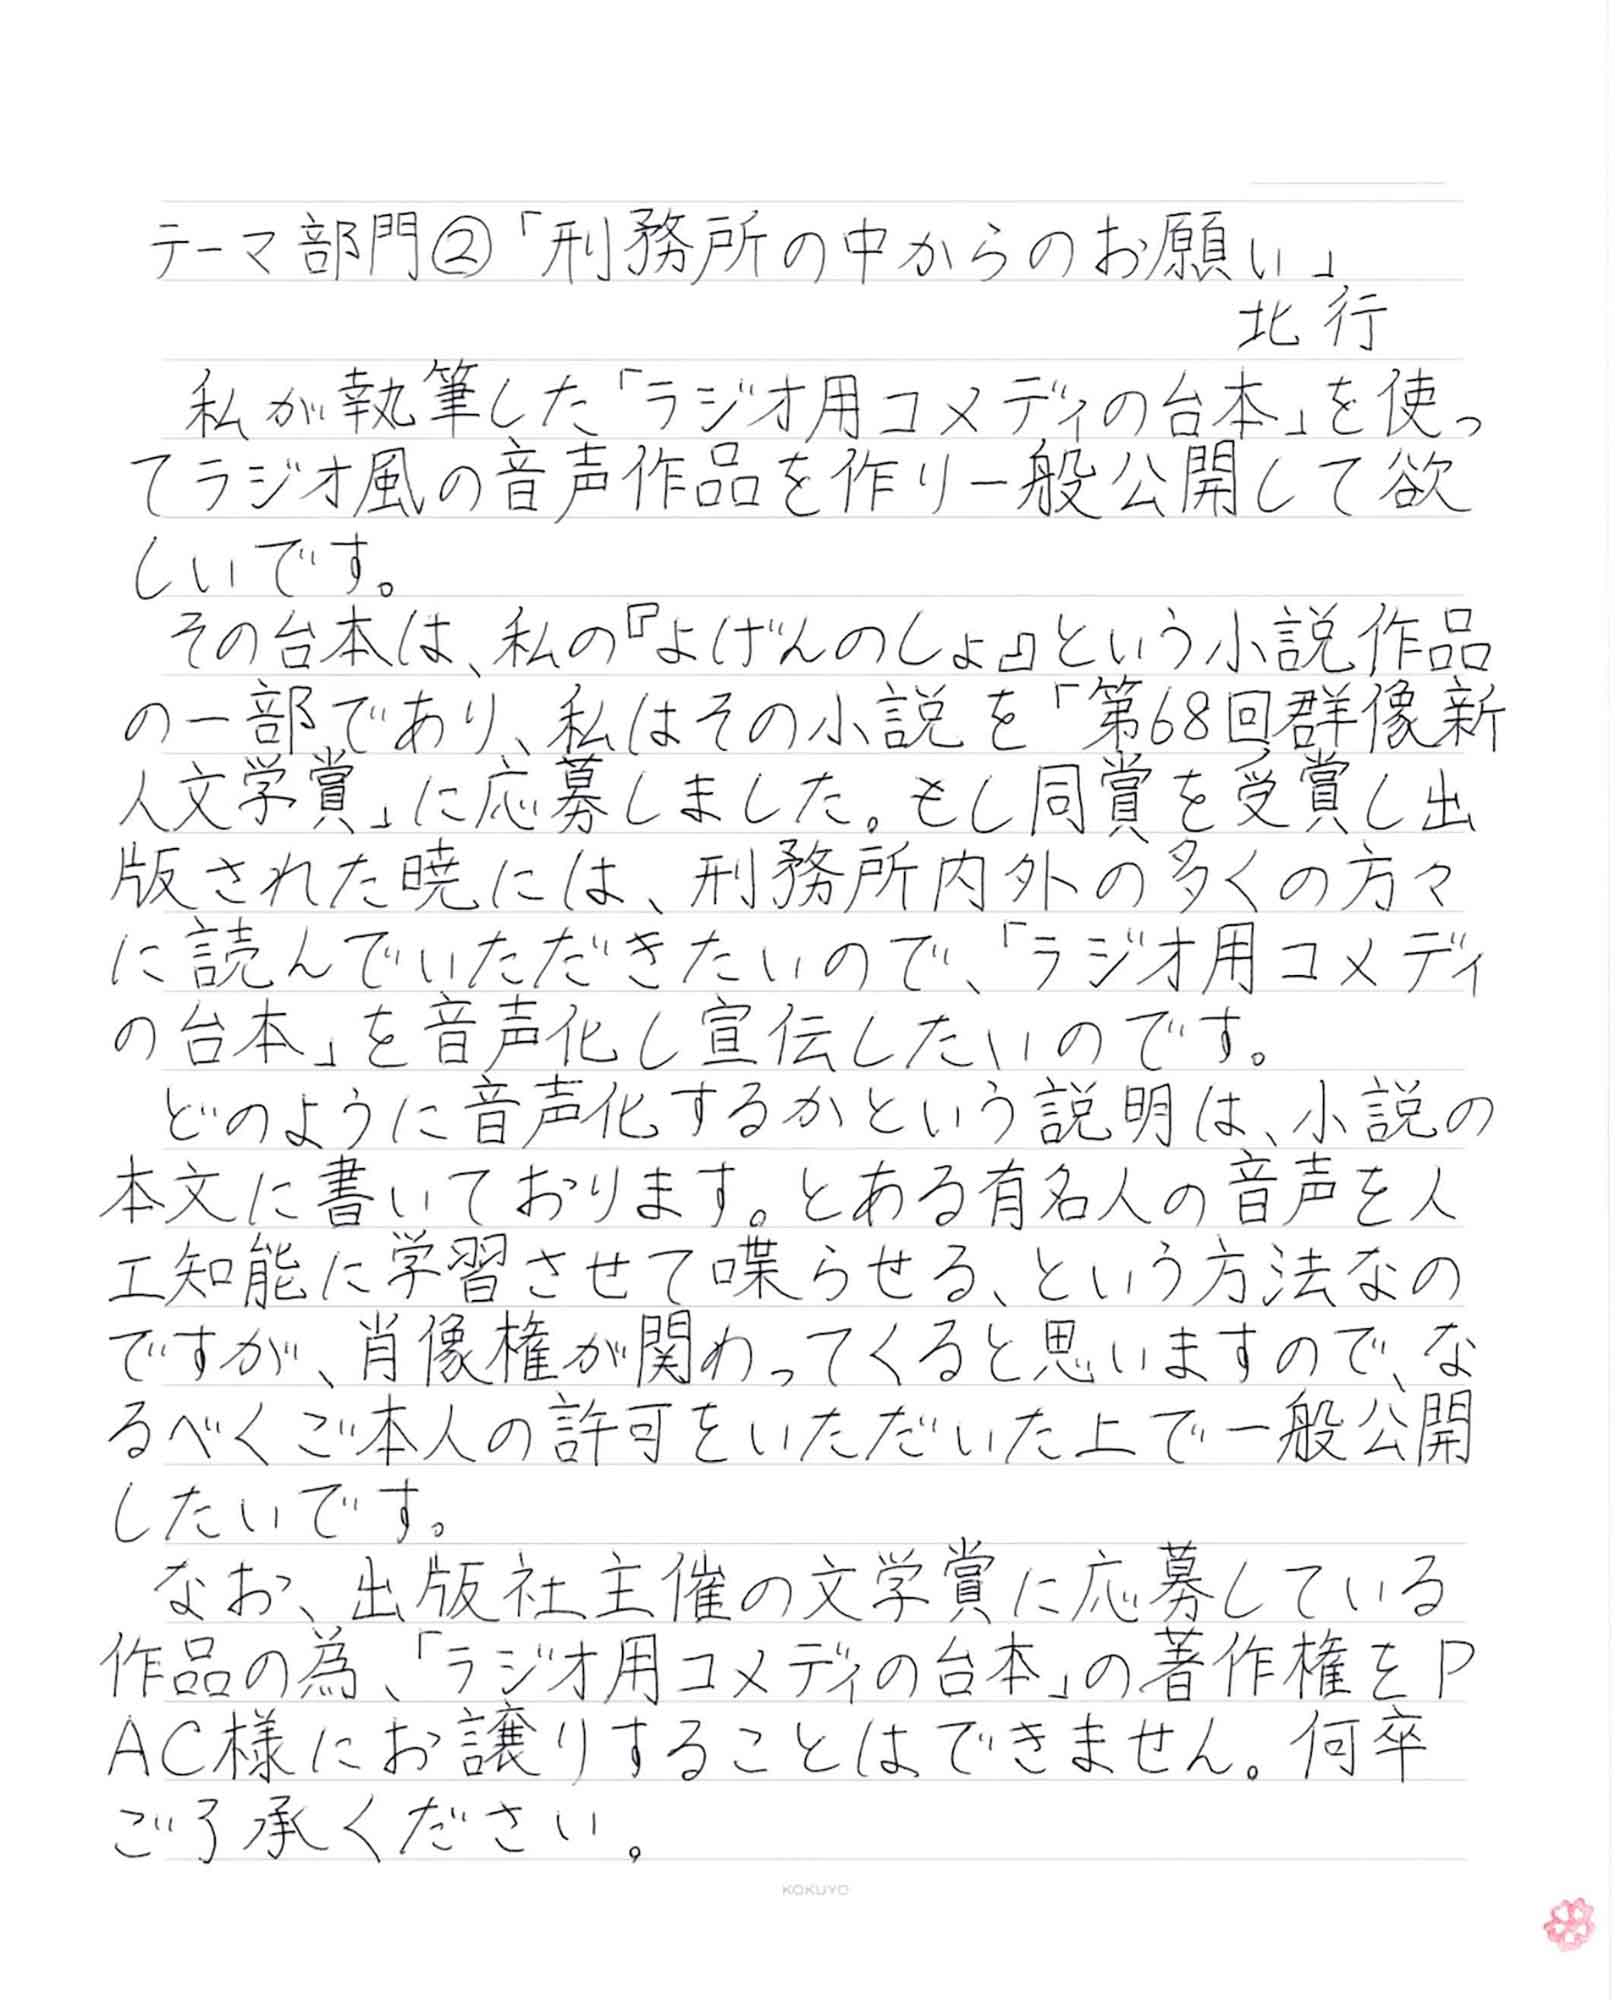 テーマ部門②「刑務所の中からのお願い」
北行
私が執筆した「ラジオ用コメディの台本」を使っ
てラジオ風の音声作品を作り一般公開して欲
しいです。
その台本は、私の『よげんのしょ』という小説作品
の一部であり、私はその小説を「第68回群像新
人文学賞」に応募しました。もし同賞を受賞し出
版された暁には、刑務所内外の多くの方々
に読んでいただきたいので、「ラジオ用コメディ
の台本」を音声化し宣伝したいのです。
どのように音声化するかという説明は、小説の
本文に書いております。とある有名人の音声を人
工知能に学習させて喋らせる、という方法なの
ですが、肖像権が関わってくると思いますので、な
るべくご本人の許可をいただいた上で一般公開
したいです。
なお、出版社主催の文学賞に応募している
作品の為、「ラジオ用コメディの台本」の著作権をP
AC様にお譲りすることはできません。何卒
ご了承ください。
KOKUYO